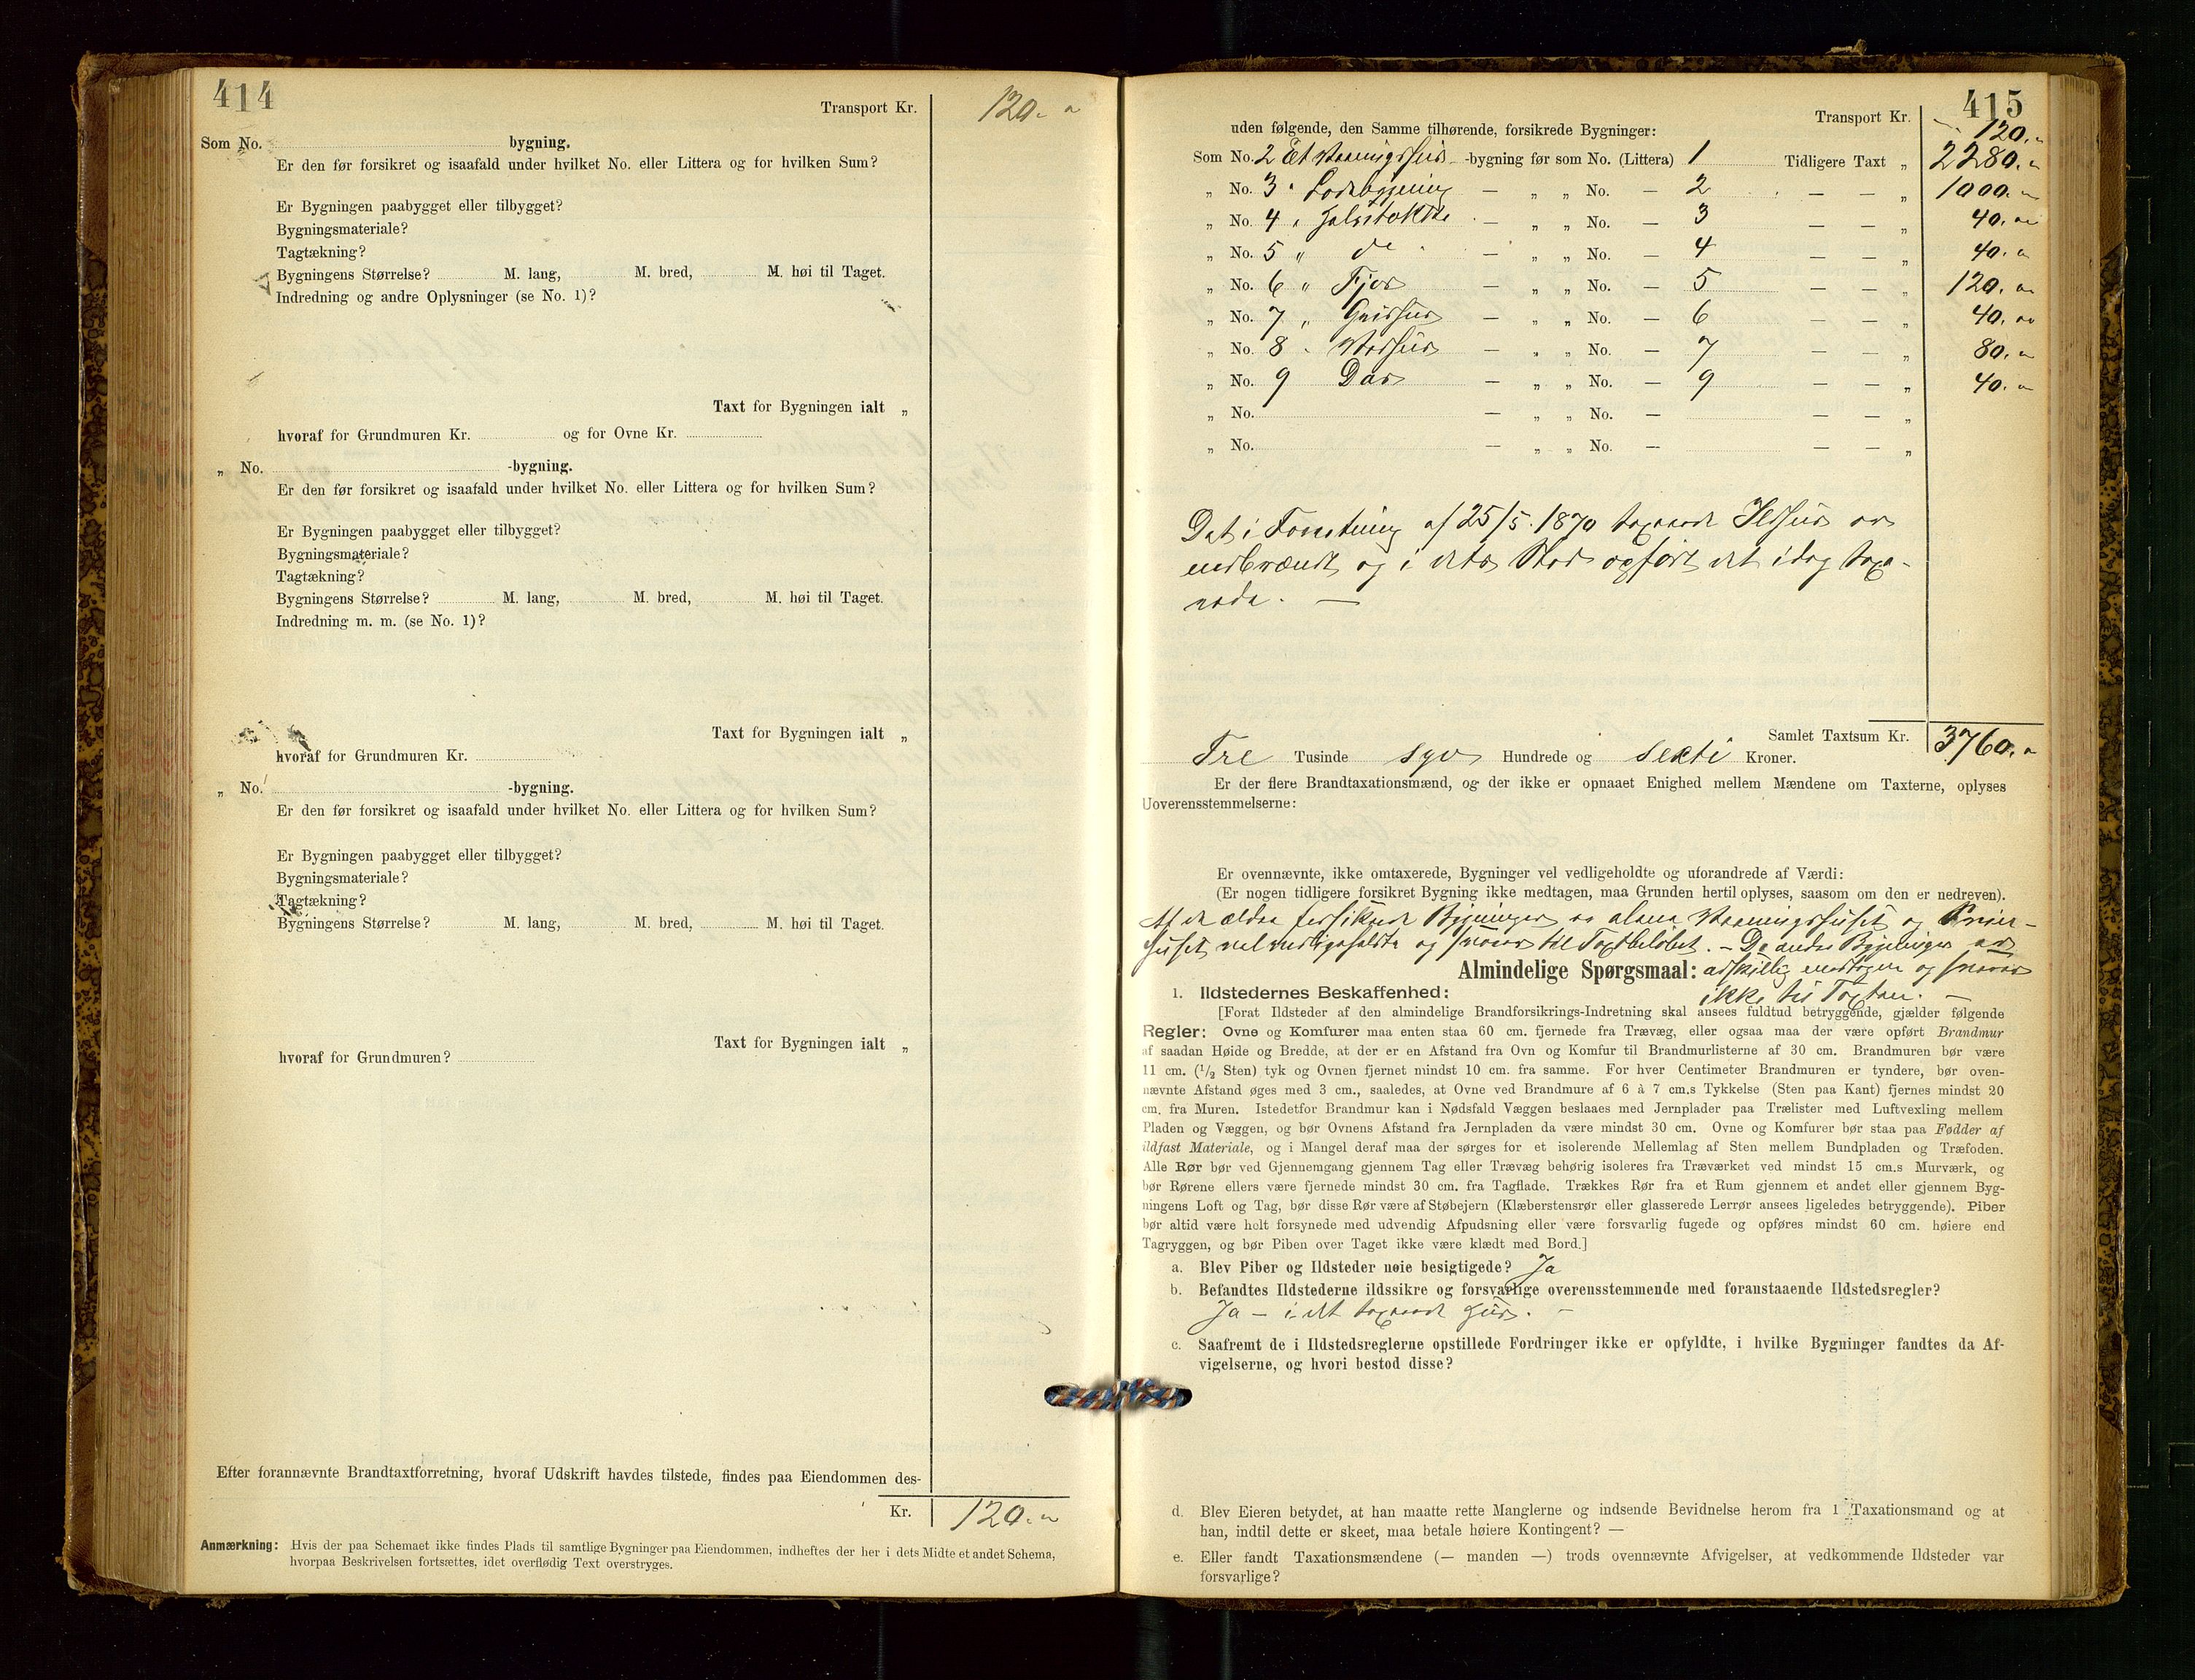 414
Transport Kr. 120.
Som No. bygning.
Er den før forsikret og isaafald under hvilket No. eller Littera og for hvilken Sum?
Er Bygningen paabygget eller tilbygget?
Bygningsmateriale?
Tagtækning?
Bygningens Størrelse? M. lang, M. bred, M. høi til Taget.
Indredning og andre Oplysninger (se No. 1)?
Taxt for Bygningen ialt „
hvoraf for Grundmuren Kr. og for Ovne Kr.
„ No. -bygning.
Er den før forsikret og isaafald under hvilket No. eller Littera og for hvilken Sum?
Er Bygningen paabygget eller tilbygget?
Bygningsmateriale?
Tagtækning?
Bygningens Størrelse? M. lang, M. bred, M. høi til Taget.
Indredning m. m. (se No. 1)?
Taxt for Bygningen ialt „
hvoraf for Grundmuren Kr.
„ No. -bygning.
Er den før forsikret og isaafald under hvilket No. eller Littera og for hvilken Sum?
Er Bygningen paabygget eller tilbygget?
Bygningsmateriale?
Tagtækning?
Bygningens Størrelse? M. lang, M. bred, M. høi til Taget.
Taxt for Bygningen ialt „
hvoraf for Grundmuren?
Efter forannævnte Brandtaxtforretning, hvoraf Udskrift havdes tilstede, findes paa Eiendommen des-
Kr. 120.
Anmærkning: Hvis der paa Schemaet ikke findes Plads til samtlige Bygninger paa Eiendommen, indheftes der her i dets Midte et andet Schema,
hvorpaa Beskrivelsen fortsættes, idet overflødig Text overstryges.
415
Transport Kr. 120.
uden følgende, den Samme tilhørende, forsikrede Bygninger:
Som No. 2 Et Vaaningshus -bygning før som No. (Littera) 1 Tidligere Taxt „ 2280.
„ No. 3 " Ladebygning — „ „ No. — 2 — — „ 1000.
„ No. 4 — „ „ No. — 3 — — „ 40.
„ No. 5 " do — „ „ No. — 4 — — „ 40.
„ No. 6 " Fjøs — „ „ No. — 5 — — „ 120.
„ No. 7 " Grishus — „ „ No. — 6 — — „ 40.
„ No. 8 " Vedhus — „ „ No. — 7 — — „ 80.
„ No. 9 Das — „ „ No. — 9 — — „ 40.
„ No. — „ „ No. — — — „
„ No. — „ „ No. — — — „
Det i Forretning af 25/5. 1870 taxerede Ildhus er
nedbrændt og i dets Sted opført det idag taxe-
rede. —
Samlet Taxtsum Kr. 3760.
Tre Tusinde syv Hundrede og sexti Kroner.
Er der flere Brandtaxationsmænd, og der ikke er opnaaet Enighed mellem Mændene om Taxterne, oplyses
Uoverensstemmelserne:
Er ovennævnte, ikke omtaxerede, Bygninger vel vedligeholdte og uforandrede af Værdi:
(Er nogen tidligere forsikret Bygning ikke medtagen, maa Grunden hertil oplyses, saasom om den er nedreven).
Af de ældre forsikrede Bygninger er alene Vaaningshuset og
huset vel vedligeholdte og svarer til Taxtbeløbet. — De andre Bygninger er
Almindelige Spørgsmaal: adskillig medtagne og svarer
ikke til Taxten. —
1. Ildstedernes Beskaffenhed:
[Forat Ildsteder af den almindelige Brandforsikrings-Indretning skal ansees fuldtud betryggende, gjælder følgende
Regler: Ovne og Komfurer maa enten staa 60 cm. fjernede fra Trævæg, eller ogsaa maa der være opført Brandmur
af saadan Høide og Bredde, at der er en Afstand fra Ovn og Komfur til Brandmurlisterne af 30 cm. Brandmuren bør være
11 cm. (1/2 Sten) tyk og Ovnen fjernet mindst 10 cm. fra samme. For hver Centimeter Brandmuren er tyndere, bør oven-
nævnte Afstand øges med 3 cm., saaledes, at Ovne ved Brandmure af 6 à 7 cm.s Tykkelse (Sten paa Kant) fjernes mindst 20
cm. fra Muren. Istedetfor Brandmur kan i Nødsfald Væggen beslaaes med Jernplader paa Trælister med Luftvexling mellem
Pladen og Væggen, og bør Ovnens Afstand fra Jernpladen da være mindst 30 cm. Ovne og Komfurer bør staa paa Fødder af
ildfast Materiale, og i Mangel deraf maa der sørges for et isolerende Mellemlag af Sten mellem Bundpladen og Træfoden.
Alle Rør bør ved Gjennemgang gjennem Tag eller Trævæg behørig isoleres fra Træværket ved mindst 15 cm.s Murværk, og
bør Rørene ellers være fjernede mindst 30 cm. fra Tagflade. Trækkes Rør fra et Rum gjennem et andet eller gjennem Byg-
ningens Loft og Tag, bør disse Rør være af Støbejern (Klæberstensrør eller glasserede Lerrør ansees ligeledes betryggende). Piber
bør altid være helt forsynede med udvendig Afpudsning eller være forsvarlig fugede og opføres mindst 60 cm. høiere end
Tagryggen, og bør Piben over Taget ikke være klædt med Bord.]
a. Blev Piber og Ildsteder nøie besigtigede? Ja
b. Befandtes Ildstederne ildssikre og forsvarlige overensstemmende med foranstaaende Ildstedsregler?
Ja — i det taxerede Hus. —
c. Saafremt de i Ildstedsreglerne opstillede Fordringer ikke er opfyldte, i hvilke Bygninger fandtes da Af-
vigelserne, og hvori bestod disse?
d. Blev Eieren betydet, at han maatte rette Manglerne og indsende Bevidnelse herom fra 1 Taxationsmand og at
han, indtil dette er skeet, maa betale høiere Kontingent? —
e. Eller fandt Taxationsmændene (— manden —) trods ovennævnte Afvigelser, at vedkommende Ildsteder var
forsvarlige?